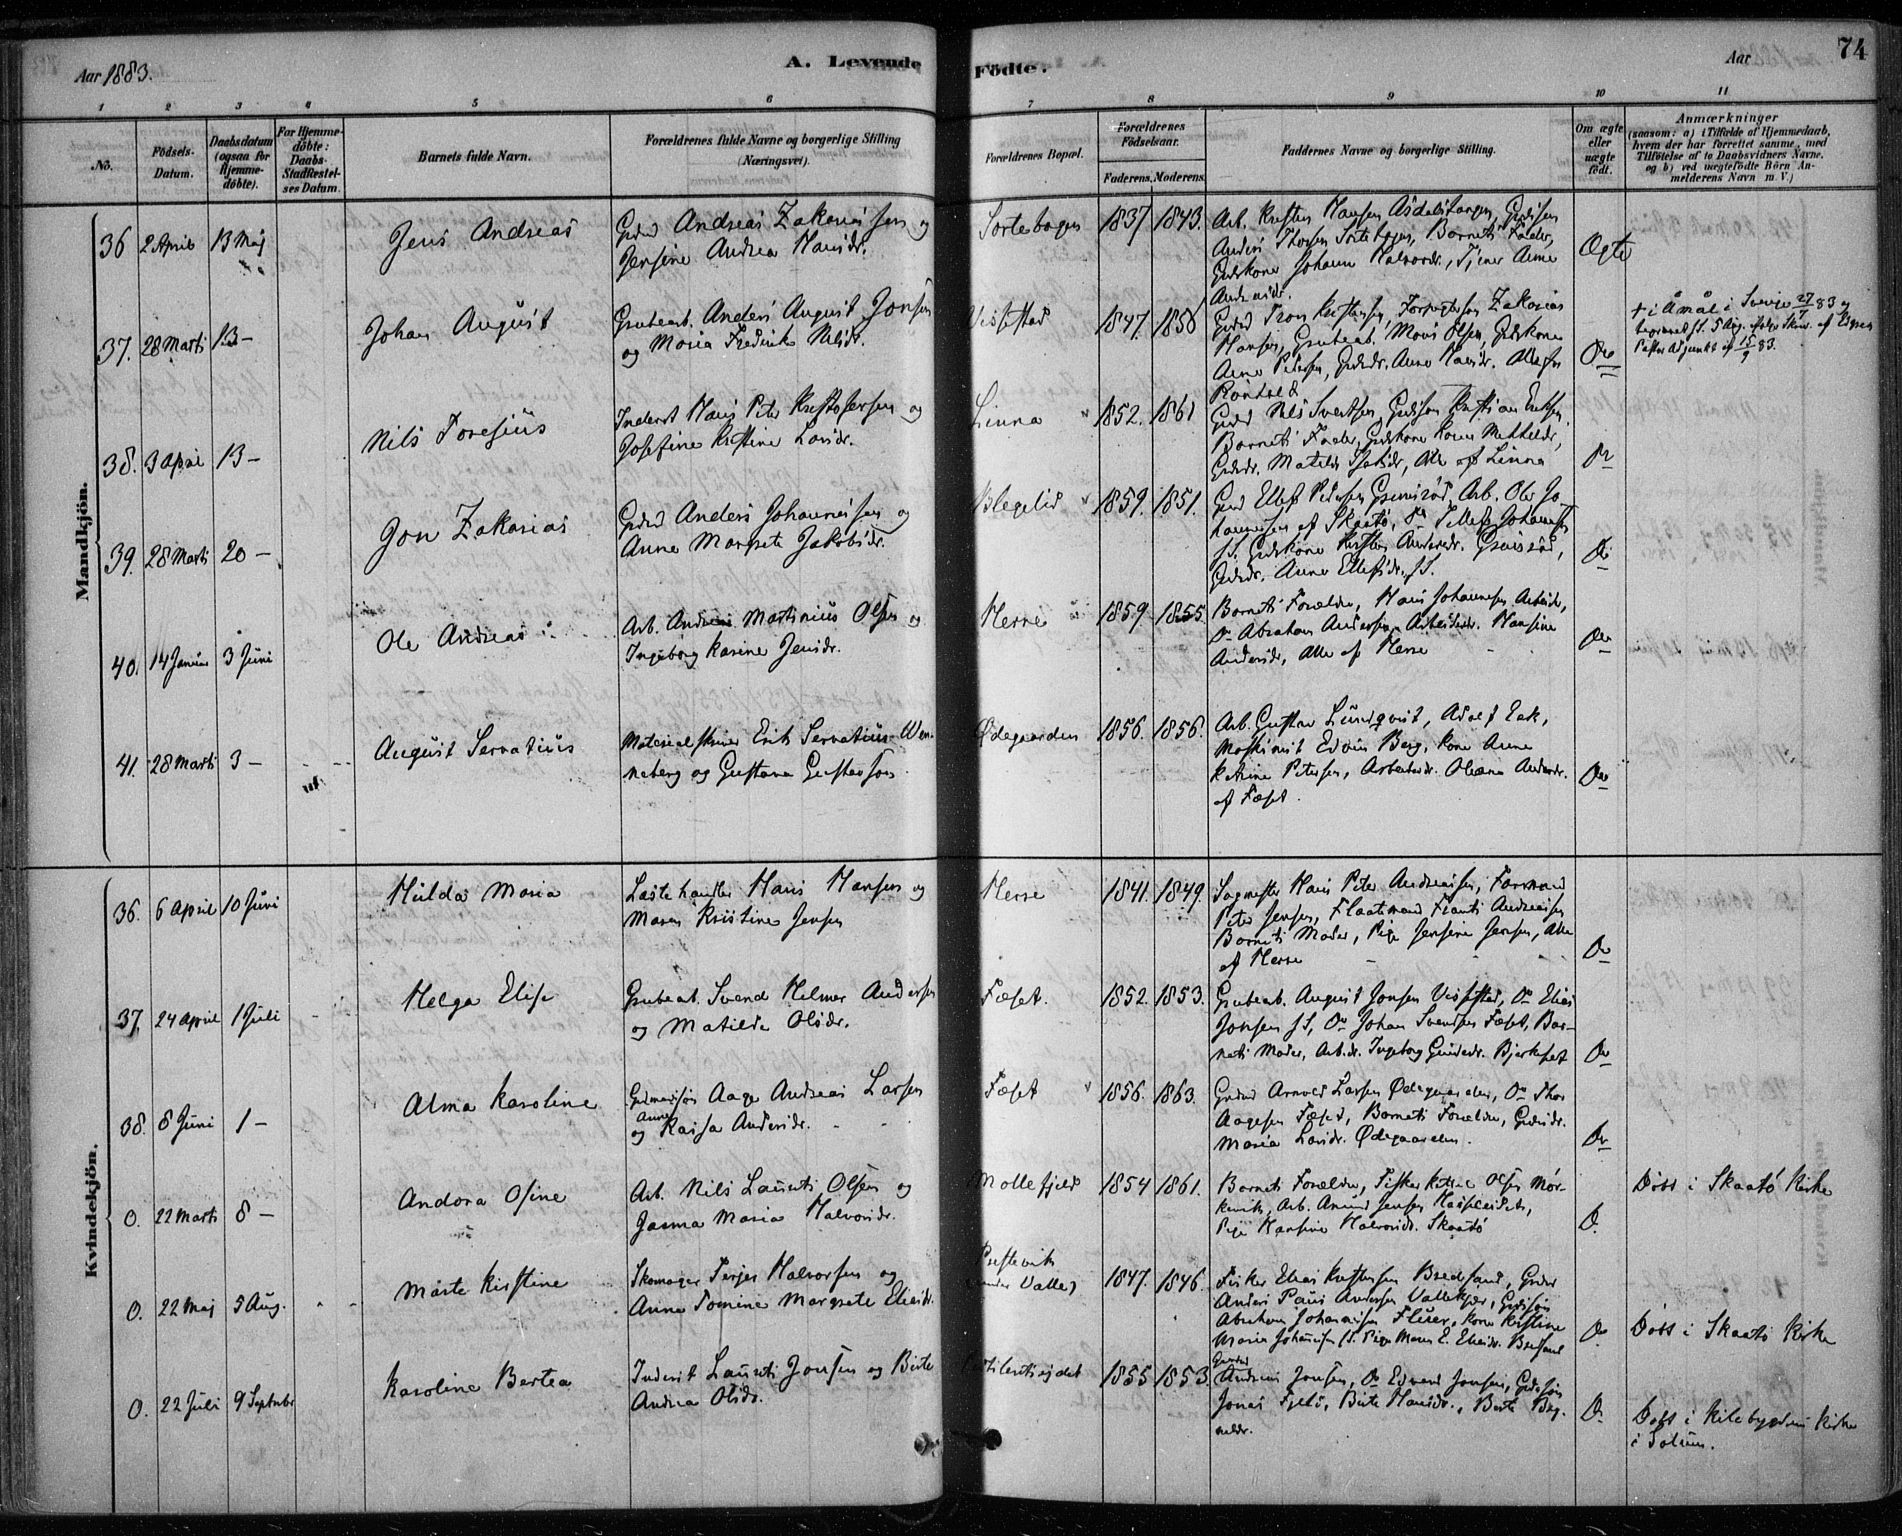 Aar 1883.
A. Levende Födte.
Aar
74
1 2 3 4 5 6 7 8 9 10 11
No.
Födsels-Datum.
Daabsdatum (ogsaa for Hjemme-döbte).
For Hjemme-döbte: Daabs-Stadfæstel-ses Datum.
Barnets fulde Navn.
Forældrenes fulde Navne og borgerlige Stilling (Næringsvei).
Forældrenes Bopæl.
Forældrenes Födselsaar.
Faderens. Moderens.
Faddernes Navne og borgerlige Stilling.
Om ægte eller uægte födt.
Anmærkninger
(saasom: a) i Tilfælde af Hjemmedaab,
hvem der har forrettet samme, med
Tilföielse af to Daabsvidners Navne,
og b) ved uægtefödte Börn An-
melderens Navn m. V.)
Mandkjön.
36 2 April 13 Maj
Jens Andreas
Grdmd Andreas Zakariassen og
Jensine Andrea Hansdr.
Sortebogen 1837 1843.
Arb. Kresten Hansen Asdalstangen, Grdssøn
Anders Thorsen Sortebogen, Barnets Fader,
Grdskone Johanne Halvorsdr., Tjener Anne
Andersdr.
Ægte
37. 28 Marts 13 –
Johan August
Grubearb. Anders August Jonsen
og Maria Fredrikke Nilsdr.
Vissestad 1847. 1850
Hansen, Grubearb. Mons Olsen, Grdskone
Anne Petersen, Grdsdr. Anne Hansdr. Alle fra
Do
+ i Åmål i Sverige 27/7 83 og
Pastor Adjunkt af 15/9 83.
38. 3 April 13 –
Nils Josefius
Inderst Hans Peter Kristofersen og
Josefine Kristine Larsdr.
Linna 1852. 1861
Grdmd Nils Svertsen, Grdssøn Kristian Eriksen
Barnets Fader, Grdskone Karen Mikkelsdr,
Grdsdr. Matilde Isaksdr, Alle af Linna
Do
39. 28 Marts 20 –
Jon Zakarias
Grdmd Anders Johannessen og
Anne Margrete Jakobsdr.
Blegelid 1859. 1851.
Grdmd Ellef Pedersen Grummesrød, Arb. Ole Jo-
hannesen af Skaatø, Do Tellef Johannesen
SS. Grdskone Kirsten Andersdr.
Grdsdr. Anne Ellefsdr. SS.
Do
40. 14 Januar 3 Juni
Ole Andreas
Arb. Andreas Martinius Olsen og
Ingeborg Karine Jensdr.
Herre 1859 1855
Barnets Forældre, Hans Johannesen Arbeider,
Do Abraham Andersen, Arbeiderdr. Hansine
Andersdr, Alle af Herre
Do
41. 28 Marts 3 –
August Servatius
Materialskriver Erik Servatius Wen-
neberg og Gustava Gustavson
Ødegaarden 1856. 1856.
Arb. Gustav Lundqvist, Adolf Eek,
Maskinist Edvin Berg, Kone Anne
Katrine Petersen, Arbeiderdr. Oleane Andersdr.
af Fæset.
Do
Kvindekjön.
36. 6 April 10 Juni
Hilda Maria
Lastehandler Hans Hansen og
Maren Kristine Jensen
Herre 1841. 1849.
Sagmester Hans Peter Andreassen, Formand
Peter Jensen, Flaatmand Frants Andreassen
Barnets Moder, Pige Jensine Jensen, Alle
af Herre
Do
37. 24 April 1 Juli
Helga Elise
Grubearb. Svend Helmer Andersen
og Matilde Olsdr.
Fæset. 1852. 1853.
Grubearb. August Jonsen Vissestad, Do Elias
Jonsen SS, Do Johan Svendsen Fæset, Bar-
nets Moder, Arb.dr. Ingeborg Gundersdr. Bjerkeset
Do
38. 8 Juni 1 –
Alma Karoline
Grdmandssøn Aage Andreas Larsen
og Anne Kaisa Andersdr.
Fæset 1856. 1863.
Grdmd Arnold Larsen Ødegaarden, Do Thor
Aagesen Fæset, Barnets Forældre, Grdsdr.
Maria Larsdr. Ødegaarden.
Do
0. 22 Marts 8 –
Andora Osine
Arb. Nils Laurits Olsen og
Janna Maria Halvorsdr.
Mollefjeld 1854 1861.
Barnets Forældre, Fisker Kittel Olsen Mør-
kevik, Arb. Anund Jensen
Pige Hansine Halvorsdr. Skaatø
Do
Døbt i Skaatø Kirke
0. 22 Maj 5 Aug.
Marte Kirstine
Skomager Terjer Halvorsen og
Anne Tomine Margrete Eliasdr.
Prestevik
(under Valle) 1847. 1846.
Fisker Elias Kristensen Bredsand, Grdmd
Anders Paus Andersen Vallekjær, Grdssøn
Abraham Johannessen Flauer, Kone Kirstine
Maria Johannesen SS. Pige Maren E. Eliasdr. Bredsand
Do
Døbt i Skaatø Kirke
0. 22 Juli 9 September
Karoline Bertea
Inderst Laurits Jonsen og Birte
Andrea Olsdr.
1855 1853.
Grdmd
Andreas Jonsen, Do Edvard Jonsen, Grdssøn
Jonas Fjellø, Birte Hansdr., Berte
Do
Døbt i Kilebygdens Kirke
i Solum.